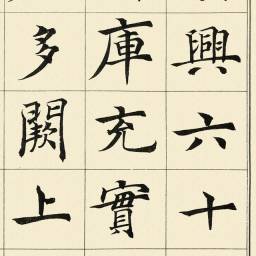 興六十
庫充實
多闕上